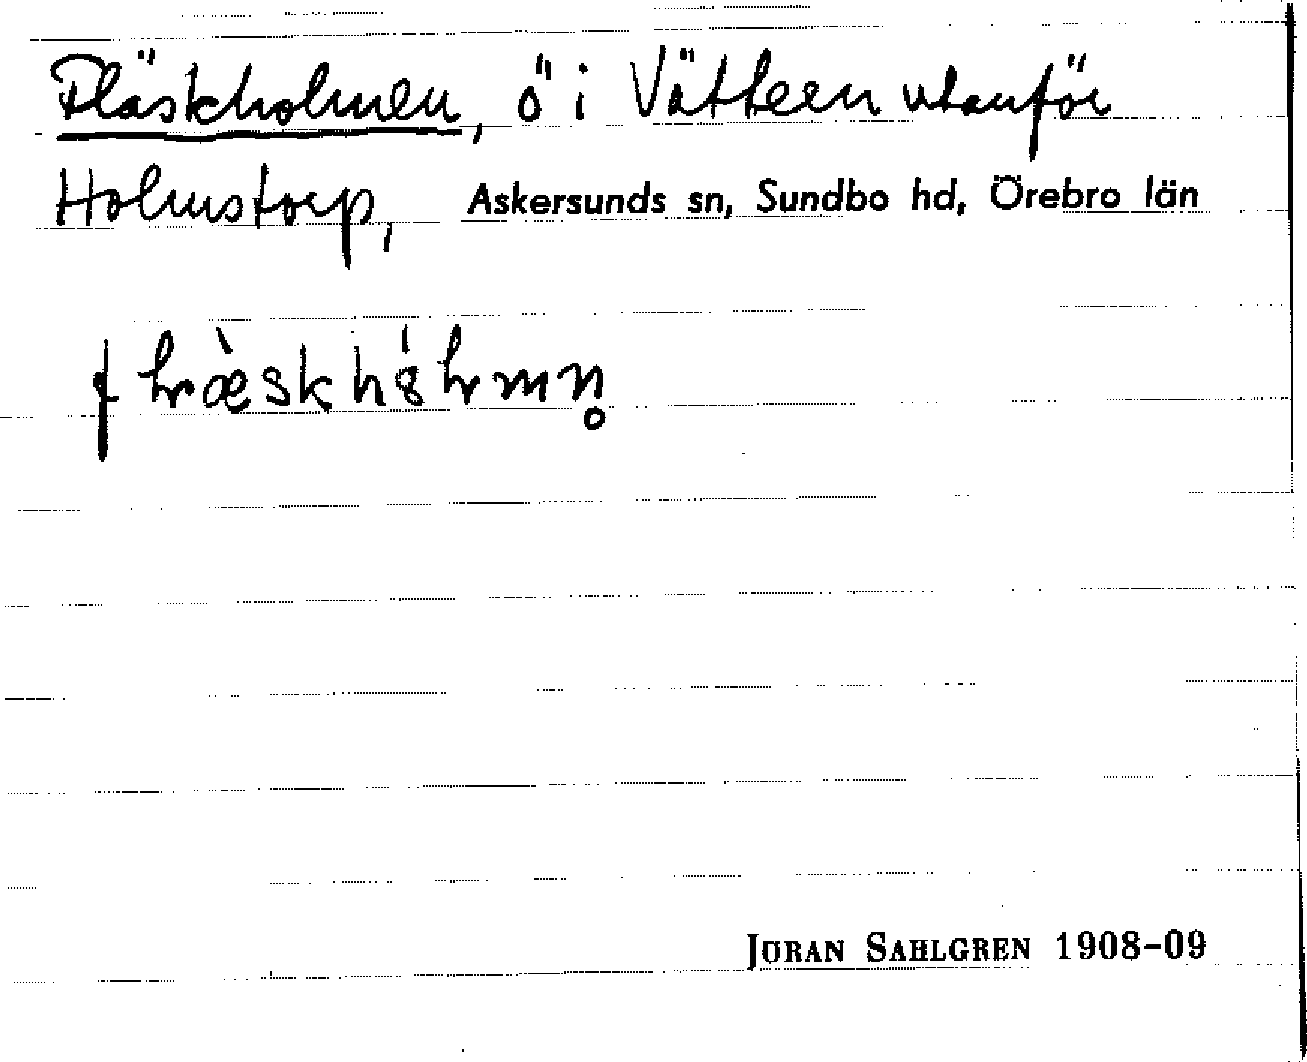 Fläskholmen, ö i Vättern utanför
Holmstorp, Askersunds sn, Sundbo hd, Örebro län
JÖRAN SAHLGREN 1908-09